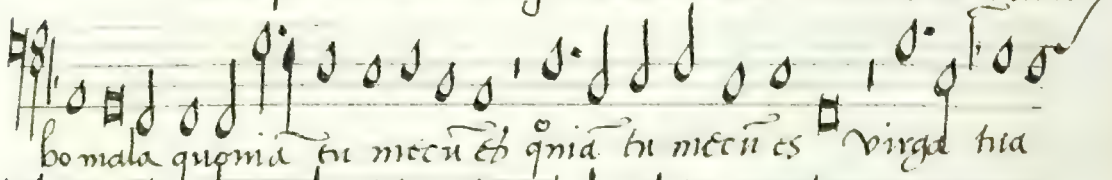 bo mala quoniā tu mecū es qͦniā tu mecū es virga tua